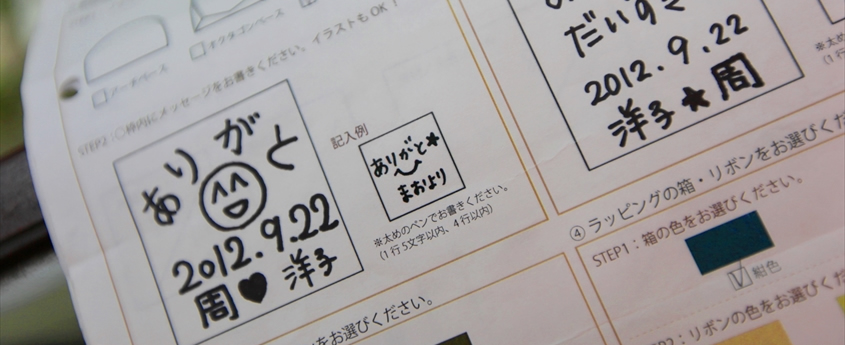 アーチベース
オクタゴンベース
STEP2：○枠内にメッセージをお書きください。イラストもOK！
ありがと
2012.9.22
周♥洋子
記入例
ありがと★
まおより
※太めのペンでお書きください。
（1行5文字以内、4行以内）
をお選びください。
だいすき
2012.9.22
洋子★周
④ ラッピングの箱・リボンをお選びくだ
STEP1：箱の色をお選びください。
紺色
：リボンの色をお選びくだ